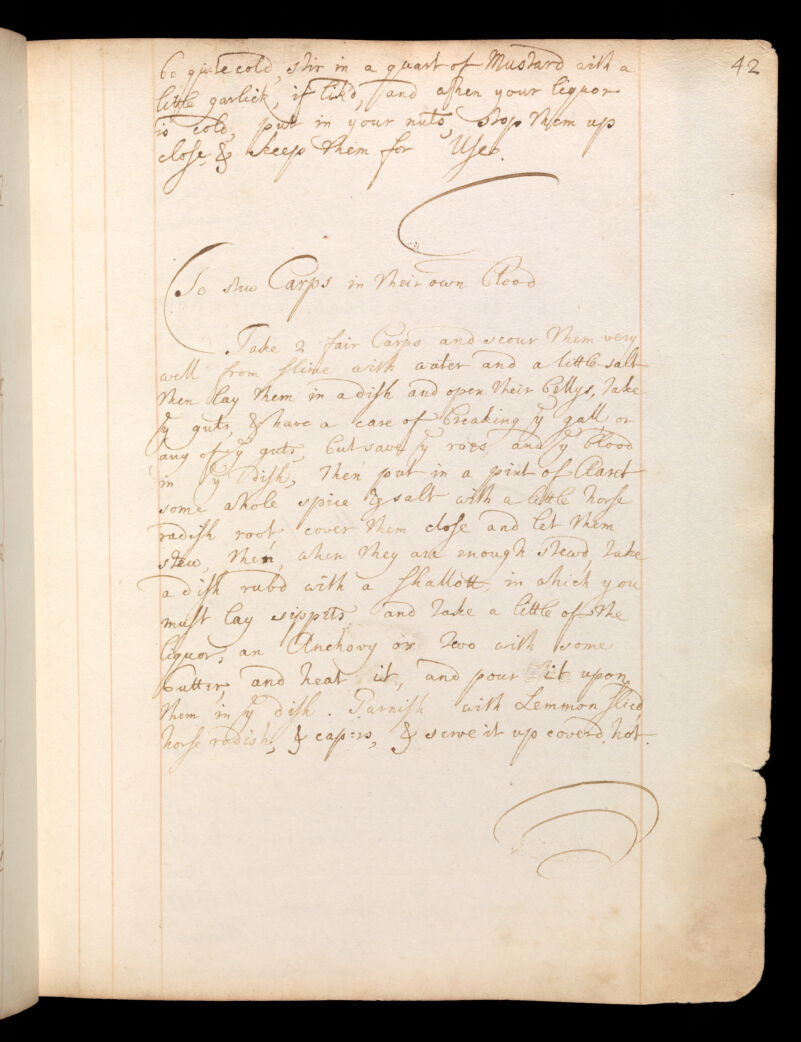 42
be quite cold, stir in a quart of Mustard with a
little garlick, if lik'd, and when your liquor
is cold, put in your nuts, stop them up
close, & keep them for Use.
To stew Carps in their own Blood
Take 2 fair Carps and scour them very
well from slime with water and a little salt
then lay them in a dish and open their bellys, take
ye guts, & have a care of breaking ye gall or
any of ye guts, but save ye roes and ye blood
in ye dish, then put in a pint of Claret
some whole spice & salt with a little horse
radish root cover them close and let them
stew, then, when they are enough stewd, take
a dish rubd with a shallott, in which you
must lay sippits and take a little of the
liquor, an Anchovy or two with some
butter, and heat it, and pour it upon
them in ye dish. Garnish with Lemmon slic'd
horse radish, & capers, & serve it up coverd hot.